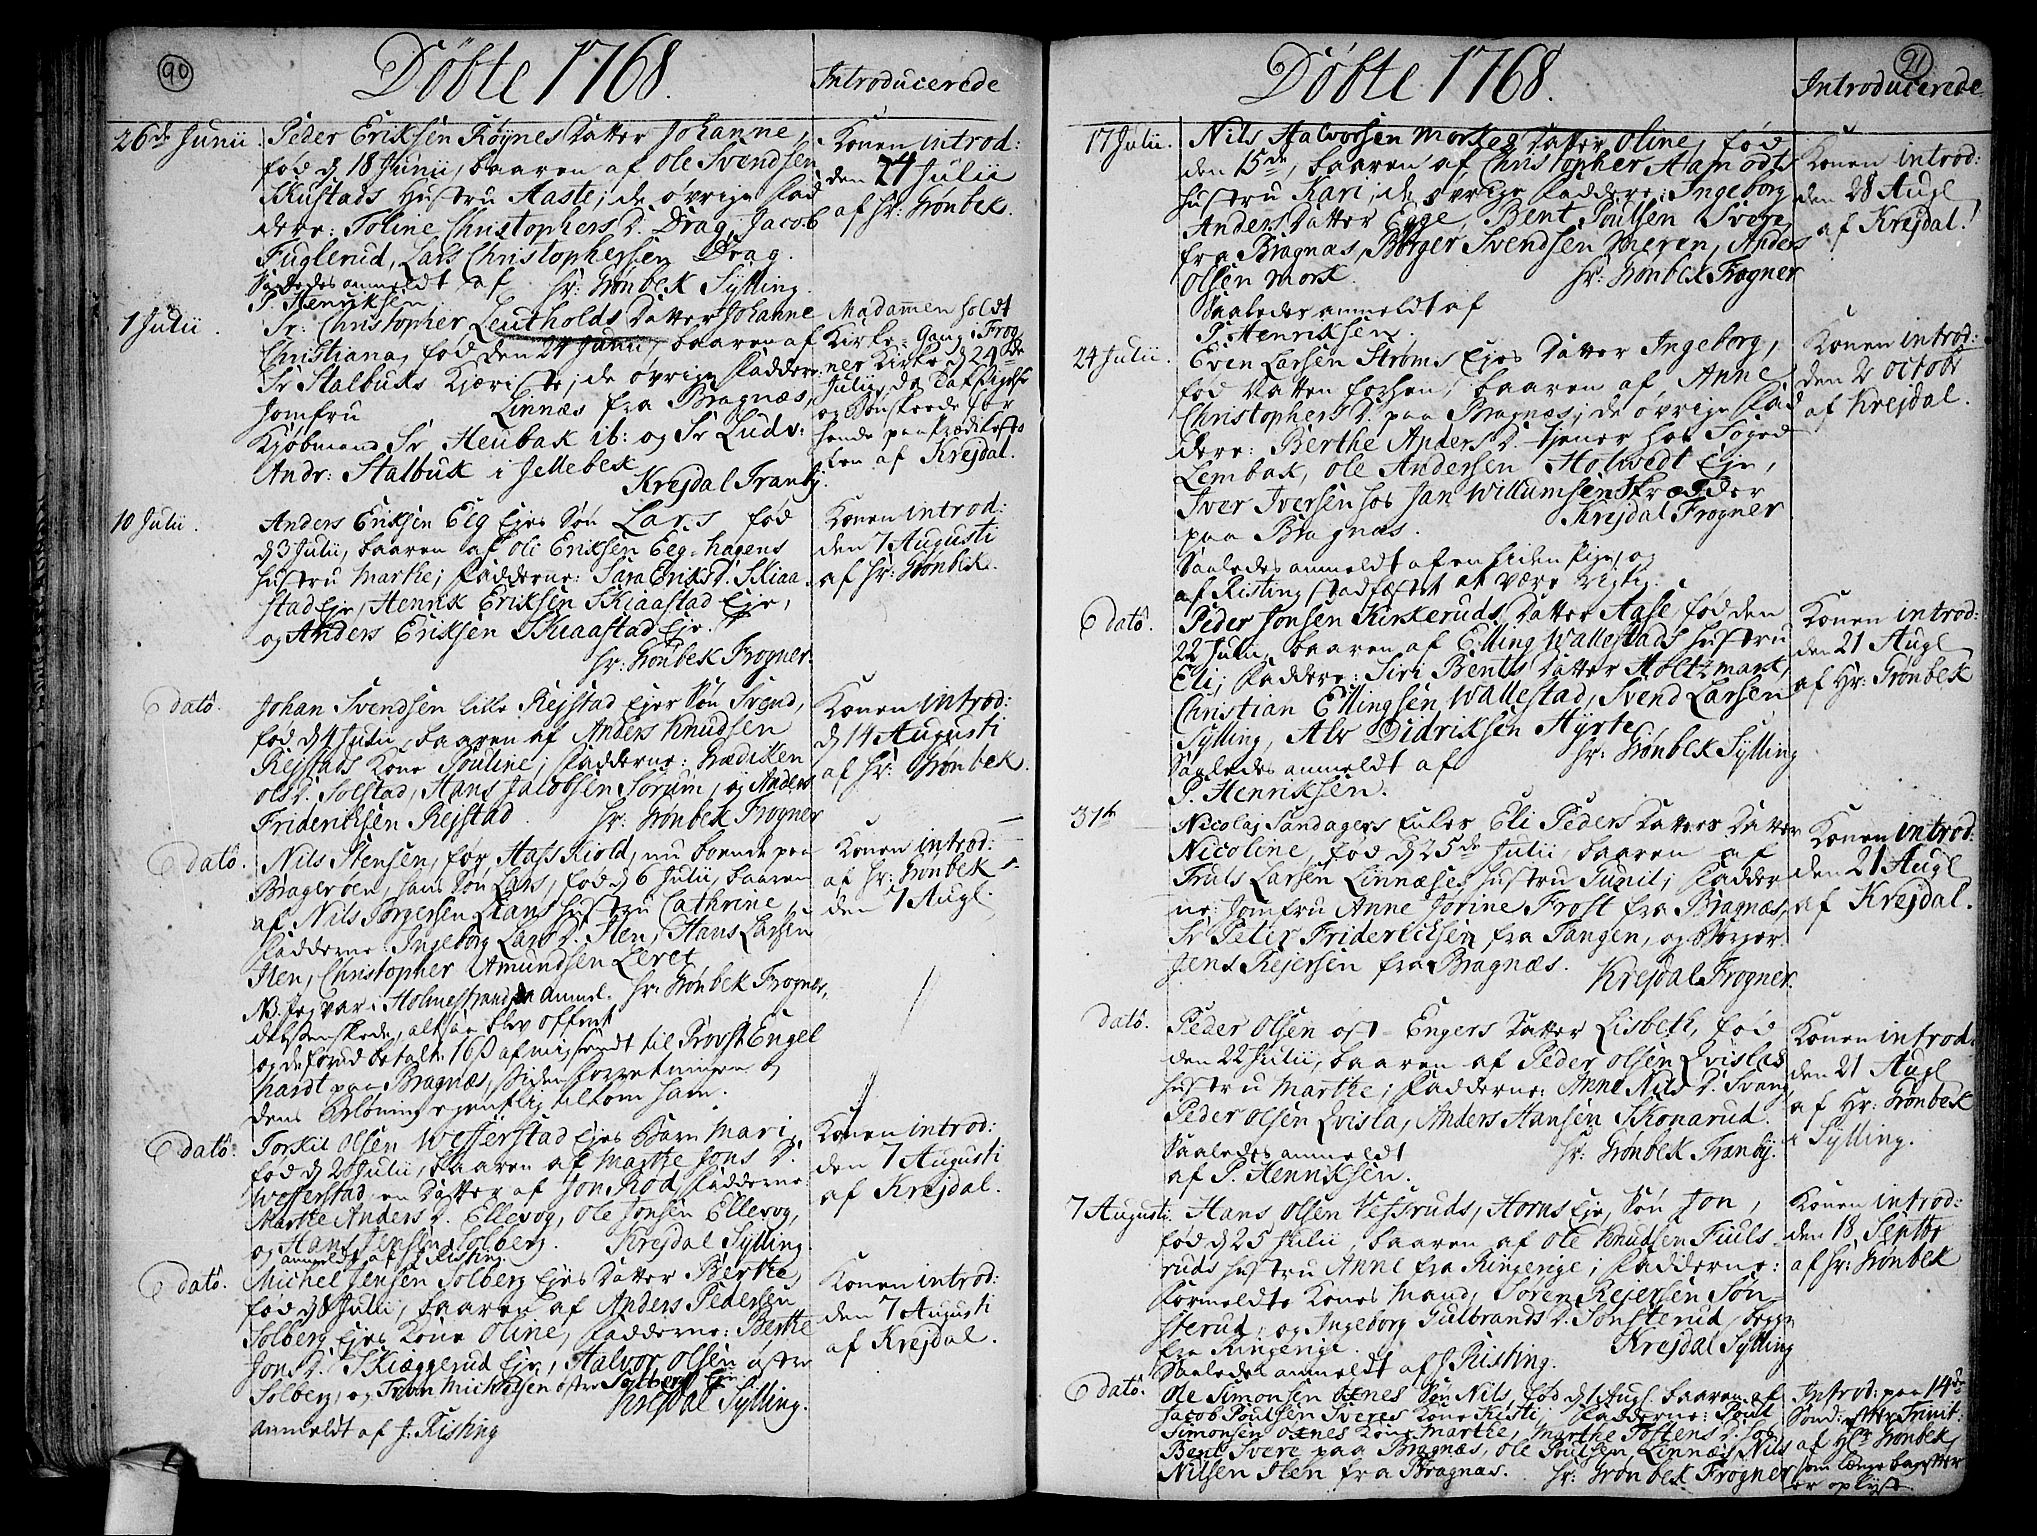 90
Döbte 1768.
Introducerede
26de Junii
Peder Eriksen Röynes Datter Johanne,
fød d. 18 Junii, baaren af Ole Svendsen
Skustads Hustru Aaste; de øvrige Fad
dere: Toline Christophers D. Drag, Jacob
Fuglerud, Lars Christophersen Drag.
Saaledes anmeldt af Hr: Grönbek Sylling.
P. Henriksen.
Konen introd:
den 24 Julii
af Hr: Grönbek.
1 Julii.
Sr: Christopher Leutholds Datter Johanne
Christiana, fød den 24 Junii, baaren af
Sr Stalbuks Kjæriste; de øvrige Faddere:
Jomfru Linnæs fra Bragnæs,
Kjøbmand Sr Heubak ib: og Sr Ludv:
Andr: Stalbuk i Jellebek
Krejdal Tranby.
Madamen holdt
Kirke-Gang i Frog
ner Kirke d. 24de
Julii, da Taksigelse
og Bøn skeede for
hende paa Prædikesto
len af Krejdal.
10 Julii.
Anders Eriksen Eeg Ejes Søn Lars fød
d. 3 Julii, baaren af Oli Eriksen Eeg-hagens
Hustru Marthe; Fadderne: Sara Eriks D. Skiaa
stad Eje, Henrik Eriksen Skiaastad Eje,
og Anders Eriksen Skiaastad Eje.
Hr: Grönbek Frogner.
Konen introd:
den 7 Augusti
af Hr: Grönbek.
dato.
Johan Svendsen lille Rejstad Ejes Søn Svend,
fød d. 4 Julii, baaren af Anders Knudsen
Rejstads Kone Pouline; Fadderne: Grædiken
Ols D. Solstad, Hans Jacobsen Sörum, og Anders
Friderichsen Rejstad. Hr: Grönbek Frogner
Konen introd:
d. 14 Augusti
af Hr: Grönbek.
dato.
Nils Stensen, før Hafskiold, nu boende paa
Bragerøen, hans Søn Lars, fød d. 6 Julii, baaren
af Nils Borgersen Lians Hustru Cathrine,
Fadderne: Ingeborg Lars D. Sten, Hans Larsen
Sten, Christopher Amundsen Leret
Hr: Grönbek Frogner.
NB. Jeg var i Holmestrand, da anmel-
delsen skede, altsaa blev offent
og deforud betalt 16 ß af mig sendt til Provst Engel
hardt paa Bragnæs, siden Forretningen og
dens Belöning egentlig tilkom ham.
Konen introd:
af Hr: Grönbek
den 7 Augl.
dato.
Torkil Olsen Wefferstad Ejes Barn Mari,
fød d. 2 Julii, baaren af Marthe Jons D.
Wefferstad, en Datter af Jon Rod, Fadderne:
Marthe Anders D. Ellevog, Ole Jonsen Ellevog,
og Hans Jensen Solberg. Krejdal Sylling.
anmeldt af J. Risting.
Konen introd:
den 7 Augusti
af Krejdal.
dato.
Michel Jensen Solberg Ejes Datter Berthe,
fød d. 8 Julii, baaren af Anders Pedersen
Solberg Ejes Kone Oline, Fadderne: Berthe
Jons D. Skiæggerud Eje, Halvor Olsen østre
Solberg, og Tron Michelsen østre Solberg Eje.
Krejdal Sylling.
Anmeldt af J. Risting
Konen introd:
den 7 Augusti
af Krejdal.
91
Döbte 1768.
Introducerede
17 Julii.
Nils Halvorsen Morkes Datter Oline, fød
den 15de, baaren af Christopher Aamodts
Hustru Kari; de øvrige Faddere: Ingeborg
Anders Datter Egge, Bent Poulsen Svere,
fra Bragnæs, Börger Svendsen Meren, Anders
Olsen Mork. Hr: Grönbek Frogner
Saaledes anmeldt af
P. Henriksen.
Konen introd:
den 28 Augl
af Krejdal.
24 Julii.
Even Larsen Ströms Ejes Datter Ingeborg,
fød Natten forhen, baaren af Anne
Christophers D. paa Bragnæs; de øvrige Fad
dere: Berthe Anders D. tjener hos Foged
Lembak, Ole Andersen Holvedt Eje,
Iver Iversen hos Jan Willumsen Skrædder
paa Bragnæs. Krejdal Frogner
Saaledes anmeldt af en liden Pige, og
af Risting stadfæstet at være rigtig.
Konen introd:
den 2 Octobr
af Krejdal.
dato.
Peder Jonsen Kirkeruds Datter Aase fød den
22 Julii, baaren af Elling Wallestads Hustru
Eli; Faddere: Siri Bents Datter Holtzmark,
Christian Ellingsen Wallestad, Svend Larsen
Sylling, Alv Didriksen Hyrte
Hr: Grönbek Sylling
Saaledes anmeldt af
P. Henriksen.
Konen introd:
den 21 Augl
af Hr: Grönbek
31te
Nicolaj Sandagers Enkes Eli Peders Datters Datter
Nicoline, fød d. 25de Julii, baaren af
Truls Larsen Linnæses Hustru Gunil; Fadder
ne: Jomfru Anne Jorine Frost fra Bragnæs,
Sr Peter Friderichsen fra Tangen, og Borger
Jens Rejersen fra Bragnæs.
Krejdal Frogner.
Konen introd:
den 21 Augl
af Krejdal.
dato.
Peder Olsen øst-Engers Datter Lisbeth, fød
den 22 Julii, baaren af Peder Olsen Qvislas
Hustru Marthe; Fadderne: Anne Nils D. Svang
Peder Olsen Qvisla, Anders Hansen Skonarud.
Saaledes anmeldt Hr: Grönbek Tranby.
af P. Henriksen.
Konen introd:
den 21 Augl
af Hr: Grönbek
i Sylling.
7 Augusti.
Hans Olsen Vefsruds, Horns Eje, Søn Jon,
fød d. 25 Julii, baaren af Ole Knudsen Fiuls-
ruds Hustru Anne fra Ringerige; Fadderne:
formeldte Kones Mand, Sören Rejersen Søn-
sterud, og Ingeborg Gulbrands D. Sönsterud, begge
fra Ringerige. Krejdal Sylling
Saaledes anmeldt af J. Risting.
Konen introd:
den 18 Septbr
af Hr: Grönbek
dato.
Ole Simonsen Oxnes Søn Nils, fød d. 1 Augl. baaren af
Jacob Poulsen Sveres Kone Kisti, Fadderne: Poul
Simonsen Oxnes Kone Marthe, Marthe Tostens D. Jog,
Bent Svere paa Bragnæs, Ole Poulsen Linnæs, Nils
Nilsen Sten fra Bragnæs. Hr: Grönbek Frogner
Introd: paa 14de
Sönd: efter Trinit:
af Hr. Grönbek,
som længe bagefter
er oplyst.